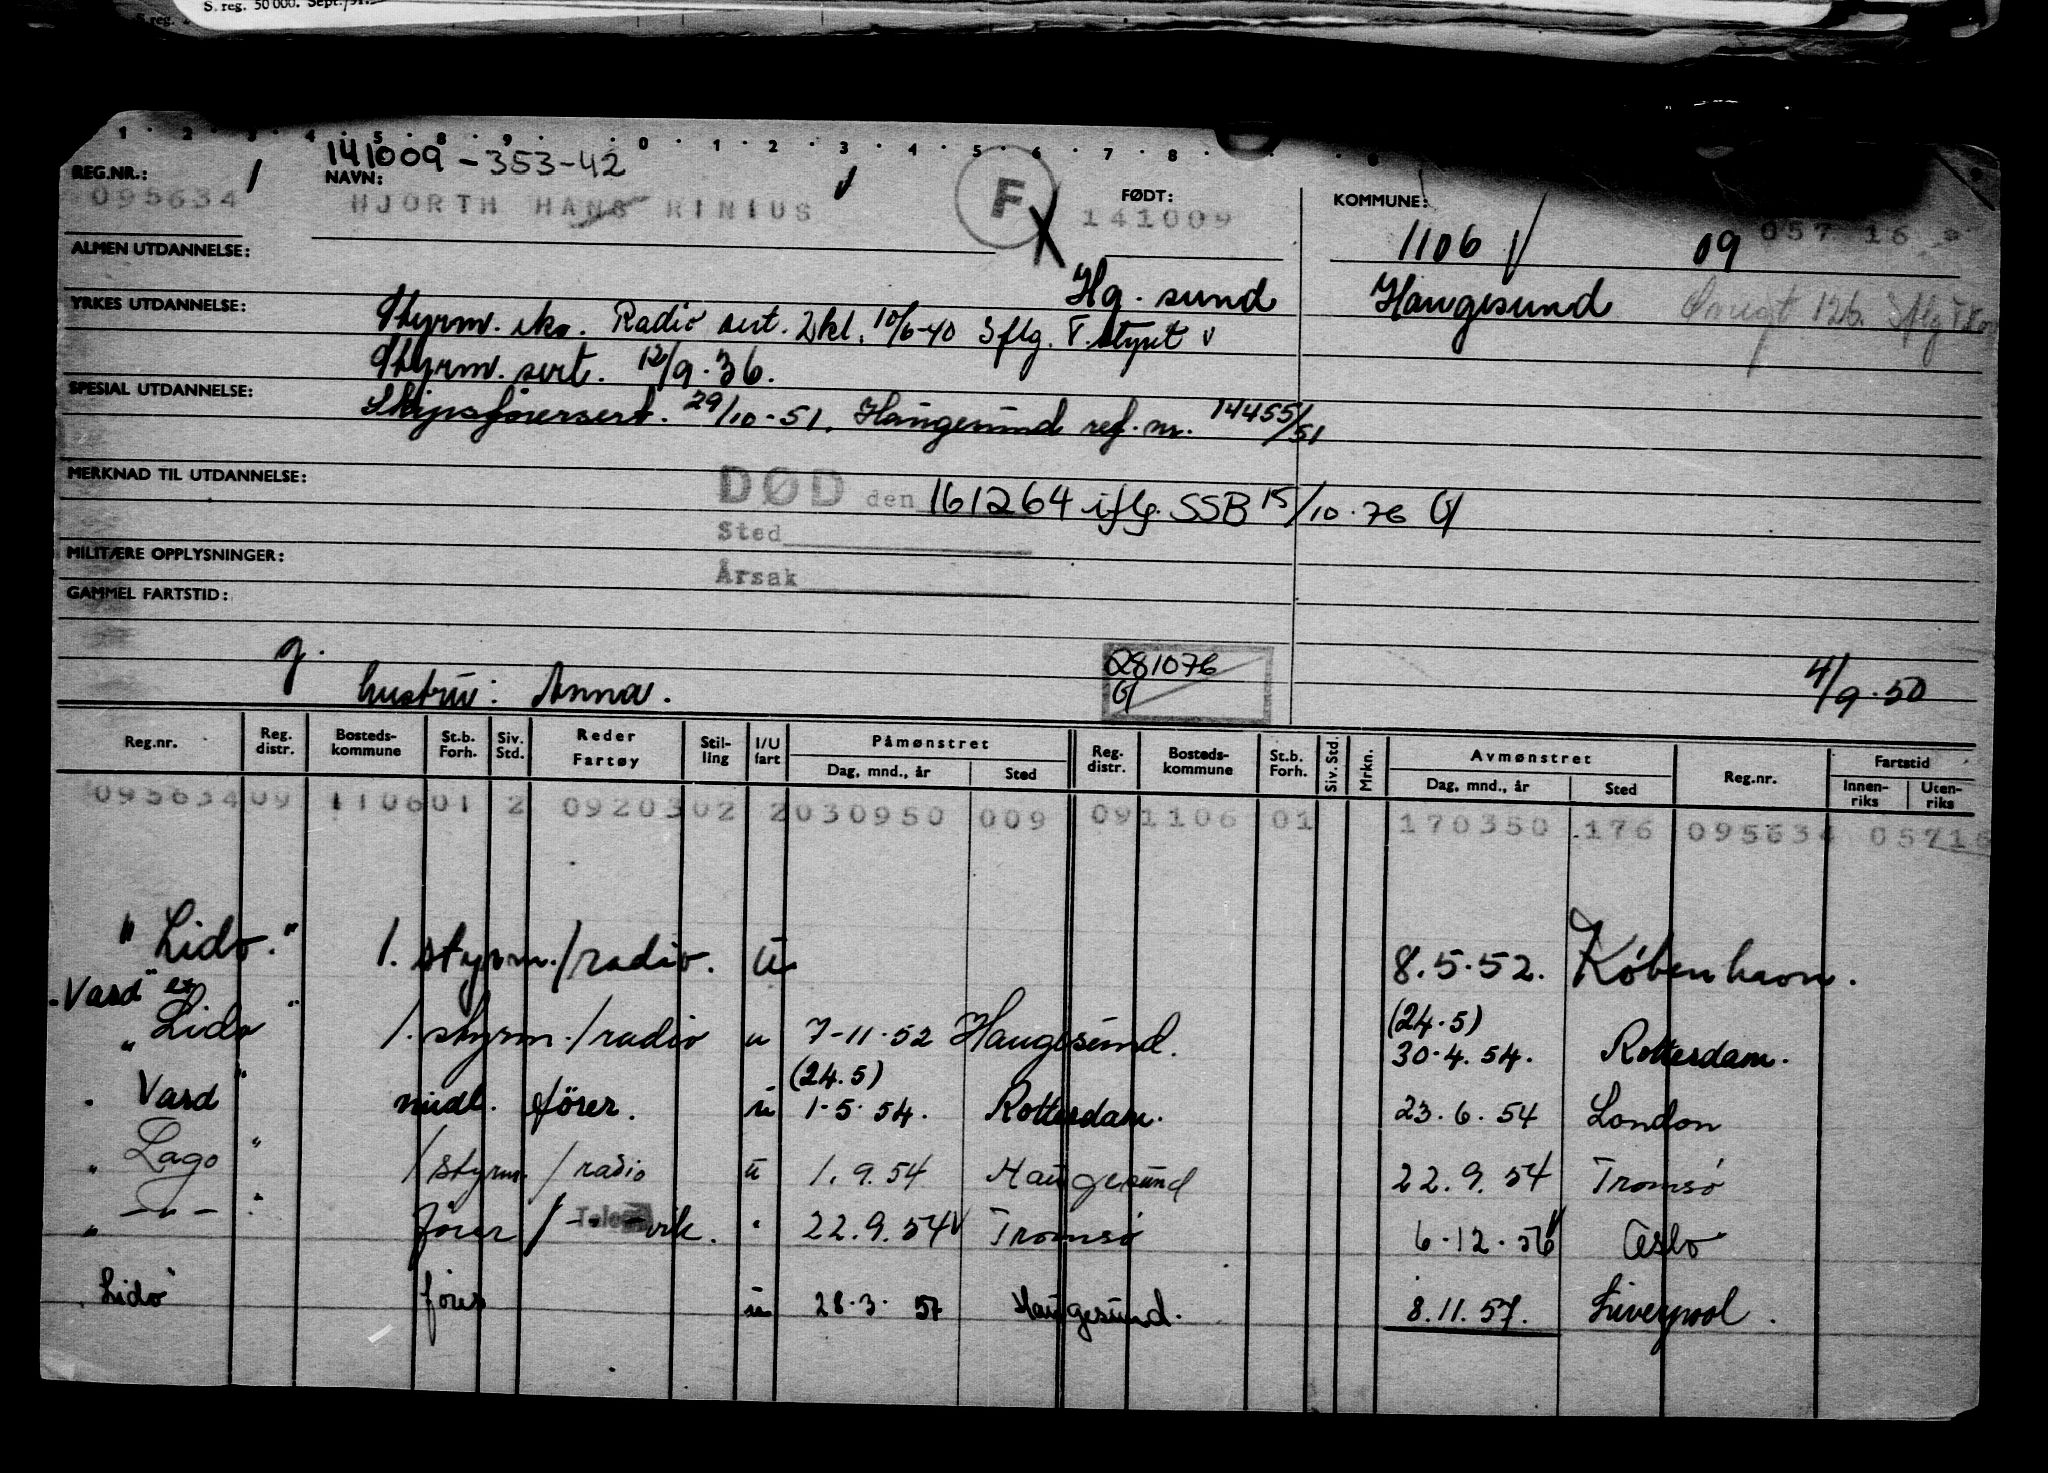 S. reg. 50 000. Sept.
S. reg.
1 · 2 · 3 · 4 · 5 · 8 · 9 · 0 · 1 · 2 · 3 · 4 · 5 · 6 · 7 · 8
141009-353-42
REG.NR.: NAVN: FØDT: KOMMUNE:
095634 HJORTH HANS RINIUS F 141009 1106 09 057 16
ALMEN UTDANNELSE:
Hg. sund Haugesund
YRKES UTDANNELSE: Styrm. sko. Radio sert. 2kl. 10/6-40 Sflg. T. styret
Styrm. sert. 12/9.36.
SPESIAL UTDANNELSE: Skipsførersert. 29/10-51. Haugesund ref. nr. 14455/51
MERKNAD TIL UTDANNELSE: DØD den 161264 iflg. SSB 15/10.76 G
Sted
MILITÆRE OPPLYSNINGER:
Årsak
GAMMEL FARTSTID:
g. 281076 4/9.50
hustru: Anna. G
Reg.nr. Reg. distr. Bosteds-kommune St.b. Forh. Siv. Std. Reder Fartøy Stil-ling I/U fart Påmønstret Dag, mnd., år Sted Reg. distr. Bosteds-kommune St.b. Forh. Siv. Std. Mrkn. Avmønstret Dag, mnd., år Sted Reg.nr. Fartstid Innen-riks Uten-riks
095634 09 1106 01 2 09203 02 2 030950 009 09 1106 01 170350 176 095634 05716
"Lido." 1. styrm./radio. u 8.5.52. København.
"Vard" ex
"Lido" 1. styrm./radio u 7-11-52 Haugesund. (24.5) 30.4.54. Rotterdam.
"Vard" midl. förer. u (24.5) 1.5.54. Rotterdam. 23.6.54 London
"Lago" 1 styrm./radio u 1.9.54 Haugesund 22.9.54 Tromsø
" — " — " fører / Tele - vik. " 22.9.54 Tromsø 6.12.56 Oslo
"Lido" fører u 28.3.57 Haugesund. 8.11.57. Liverpool.